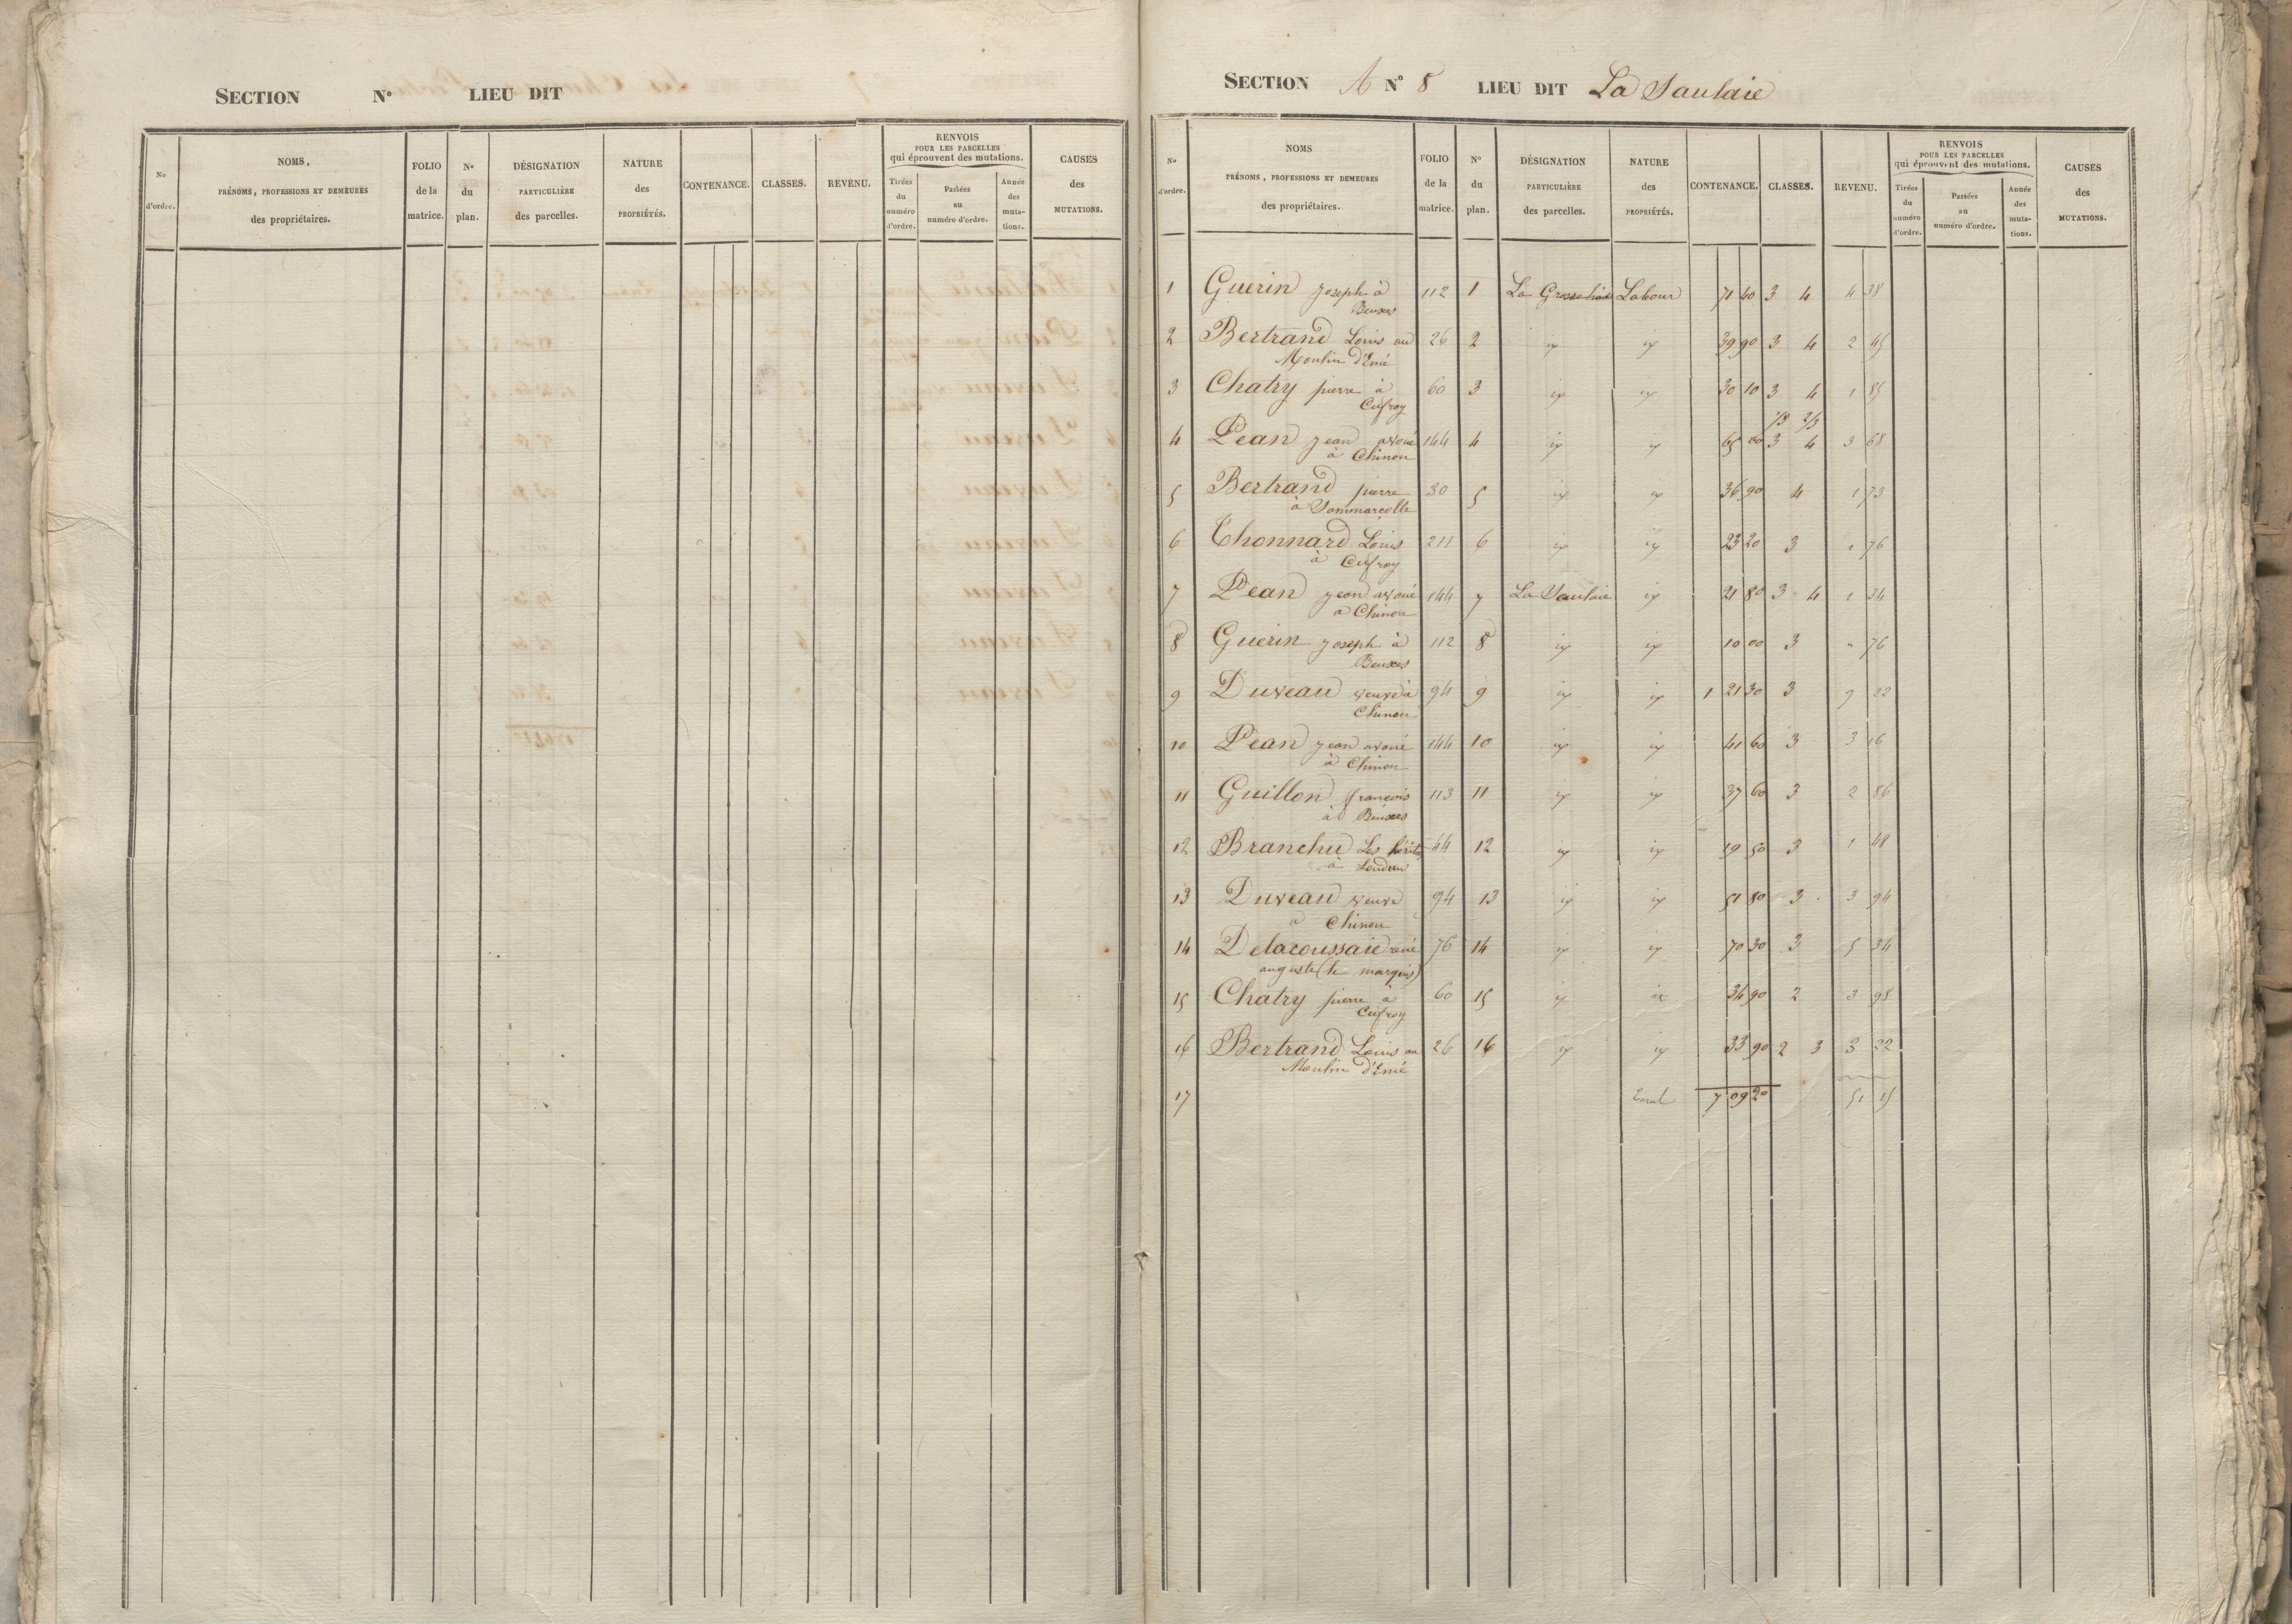 SECTION N° LIEU DIT
No d'ordre.
NOMS,
PRÉNOMS, PROFESSIONS ET DEMEURES
des propriétaires.
FOLIO de la matrice.
No du plan.
DÉSIGNATION PARTICULIÈRE des parcelles.
NATURE des PROPRIÉTÉS.
CONTENANCE.
CLASSES.
REVENU.
RENVOIS
POUR LES PARCELLES
qui éprouvent des mutations.
Tirées du numéro d'ordre.
Passées au numéro d'ordre.
Année des mutations.
CAUSES des MUTATIONS.
SECTION A N° 8 LIEU DIT La Saulaie
No d'ordre.
NOMS
PRÉNOMS, PROFESSIONS ET DEMEURES
des propriétaires.
FOLIO de la matrice.
N° du plan.
DÉSIGNATION PARTICULIÈRE des parcelles.
NATURE des PROPRIÉTÉS.
CONTENANCE.
CLASSES.
REVENU.
RENVOIS
POUR LES PARCELLES
qui éprouvent des mutations.
Tirées du numéro d'ordre.
Passées au numéro d'ordre.
Année des mutations.
CAUSES des MUTATIONS.
1 Guerin joseph à 112 1 La Labour 71 40 3 4 4 38
Beuxes
2 Bertrand Louis au 26 2 39 90 3 4 2 45
Moulin d'Emé
3 Chatry pierre à 60 3 30 10 3 4 1 85
1/3 2/3
4 Pean jean avoué 144 4 65 00 3 4 3 68
à Chinon
5 Bertrand pierre 30 5 36 90 4 1 73
à Sammarcolle
6 Thonnard Louis 211 6 23 20 3 1 76
7 Pean jean avoué 144 7 La Saulaie 21 80 3 4 1 34
a Chinon
8 Guerin joseph à 112 8 10 00 3 " 76
Beuxes
9 Duveau veuve à 94 9 1 21 30 3 9 22
Chinon
10 Pean jean avoué 144 10 41 60 3 3 16
à Chinon
11 Guillon francois 113 11 37 60 3 2 86
à Beuxes
12 Branchu Les hérit 44 12 19 50 3 1 48
à Loudun
13 Duveau veuve 94 13 51 80 3 3 94
a Chinon
14 Delacoussaie rené 76 14 70 30 3 5 34
auguste (le marquis)
15 Chatry pierre à 60 15 34 90 2 3 98
16 Bertrand Louis au 26 16 33 90 2 3 3 22
Moulin d'Emé
17 7 09 20 51 15